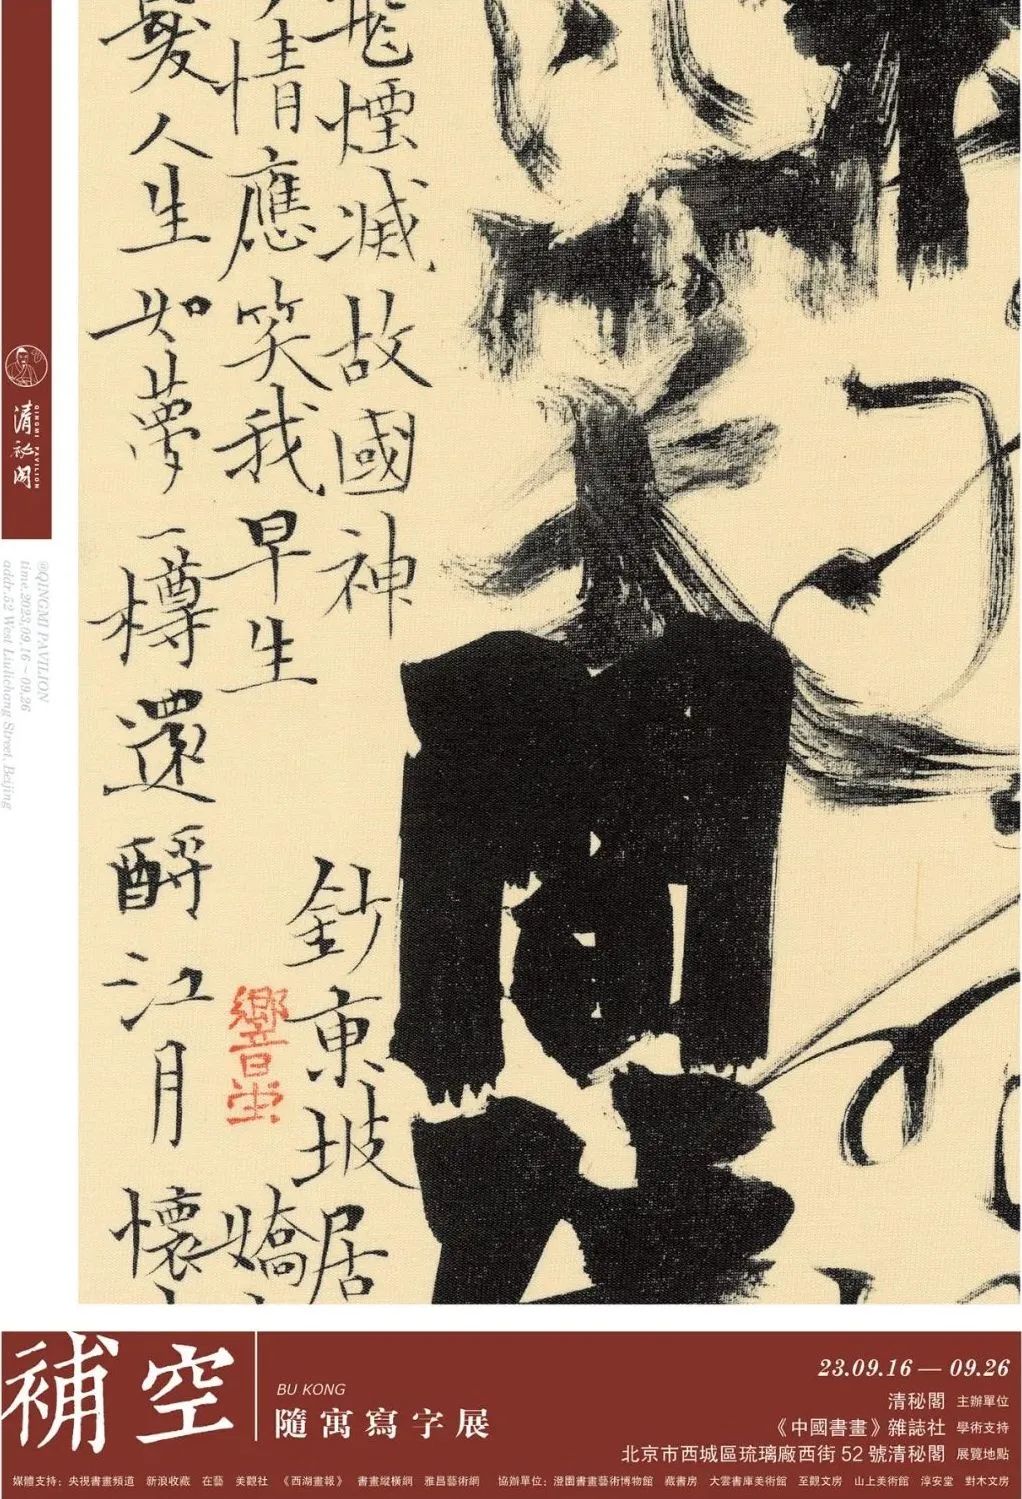 飛煙滅故國神
情應笑我早生
髮人生如夢一樽還酹江月
鈔東坡居
嬌
懷
清秘閣
QINGMI PAVILION
@QINGMI PAVILION
time.2023.09.16 – 09.26
addr.52 West Liulichang Street, Beijing
補空
BU KONG
隨寓寫字展
23.09.16 — 09.26
清秘閣 主辦單位
《中國書畫》雜誌社 學術支持
北京市西城區琉璃廠西街 52 號清秘閣 展覽地點
媒體支持：央視書畫頻道 新浪收藏 在藝 美觀社 《西湖畫報》 書畫縱橫網 雅昌藝術網 協辦單位：澄園書畫藝術博物館 藏書房 大雲書庫美術館 至觀文房 山上美術館 淳安堂 對木文房